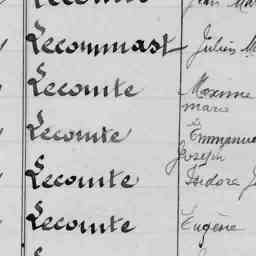 Lecommast Julien
Lecomte Maxime
marie
Lecomte Emmanuel
Joseph
Lecomte Isidore
Lecomte Eugène